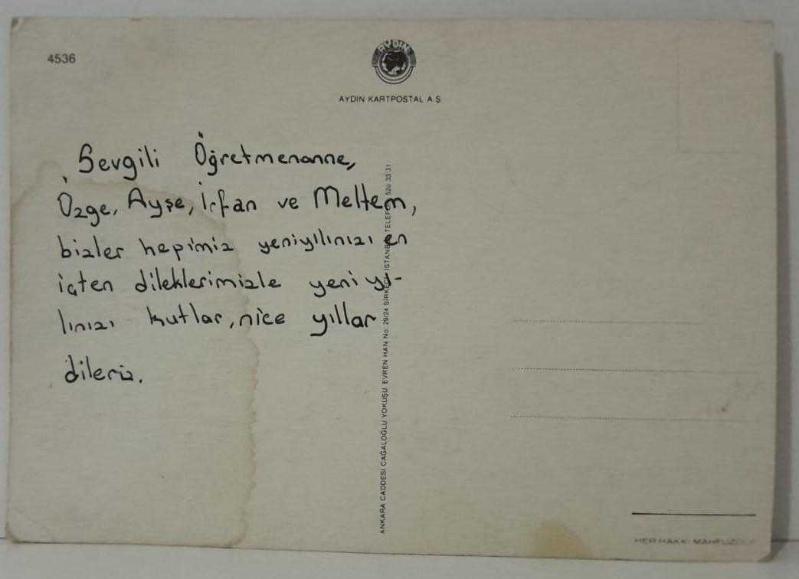 4536
AYDIN
AYDIN KARTPOSTAL A.Ş.
Sevgili Öğretmenanne,
Özge, Ayşe, İrfan ve Meltem,
bizler hepimiz yeniyılınızı en
içten dileklerimizle yeni yı-
lınızı kutlar, nice yıllar
dileriz.
ANKARA CADDESİ CAĞALOĞLU YOKUŞU EVREN HAN No: 29/24 SİRKECİ İSTANBUL TELEFON: 520 33 31
HER HAKKI MAHFUZDUR